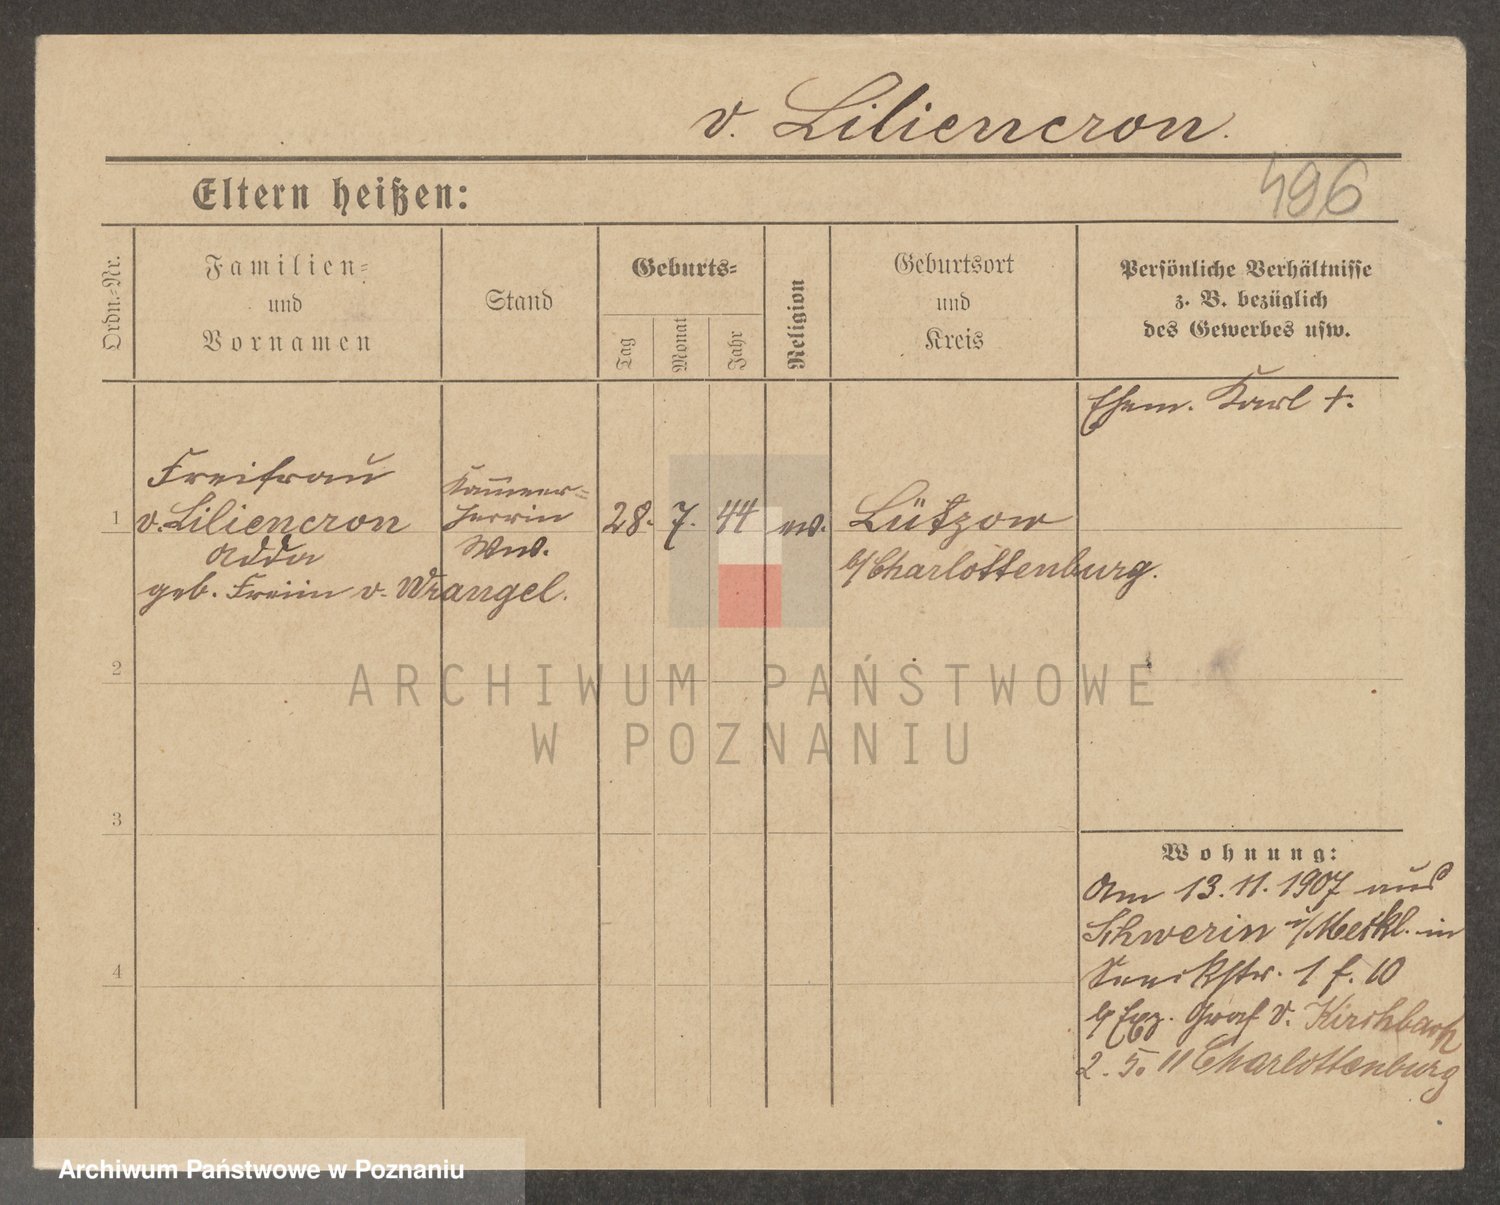 v. Liliencron.
Eltern heißen:
496
Ordn.-Nr.
Familien-
und
Vornamen
Stand
Geburts-
Tag
Monat
Jahr
Religion
Geburtsort
und
Kreis
Persönliche Verhältnisse
z. B. bezüglich
des Gewerbes usw.
Ehem. Karl †.
1
Freifrau
v. Liliencron
Adda
geb. Freiin v. Wrangel.
Kammer-
herrin
Ww.
28. 7. 44
ev.
Lützow
b/Charlottenburg.
2
3
4
Wohnung:
Am 13.11.1907 aus
Schwerin i/Meckl. in
1 f. 10
b/ Exz. Graf v. Kirchbach
2. 5. 11 Charlottenburg
ARCHIWUM PAŃSTWOWE
W POZNANIU
Archiwum Państwowe w Poznaniu